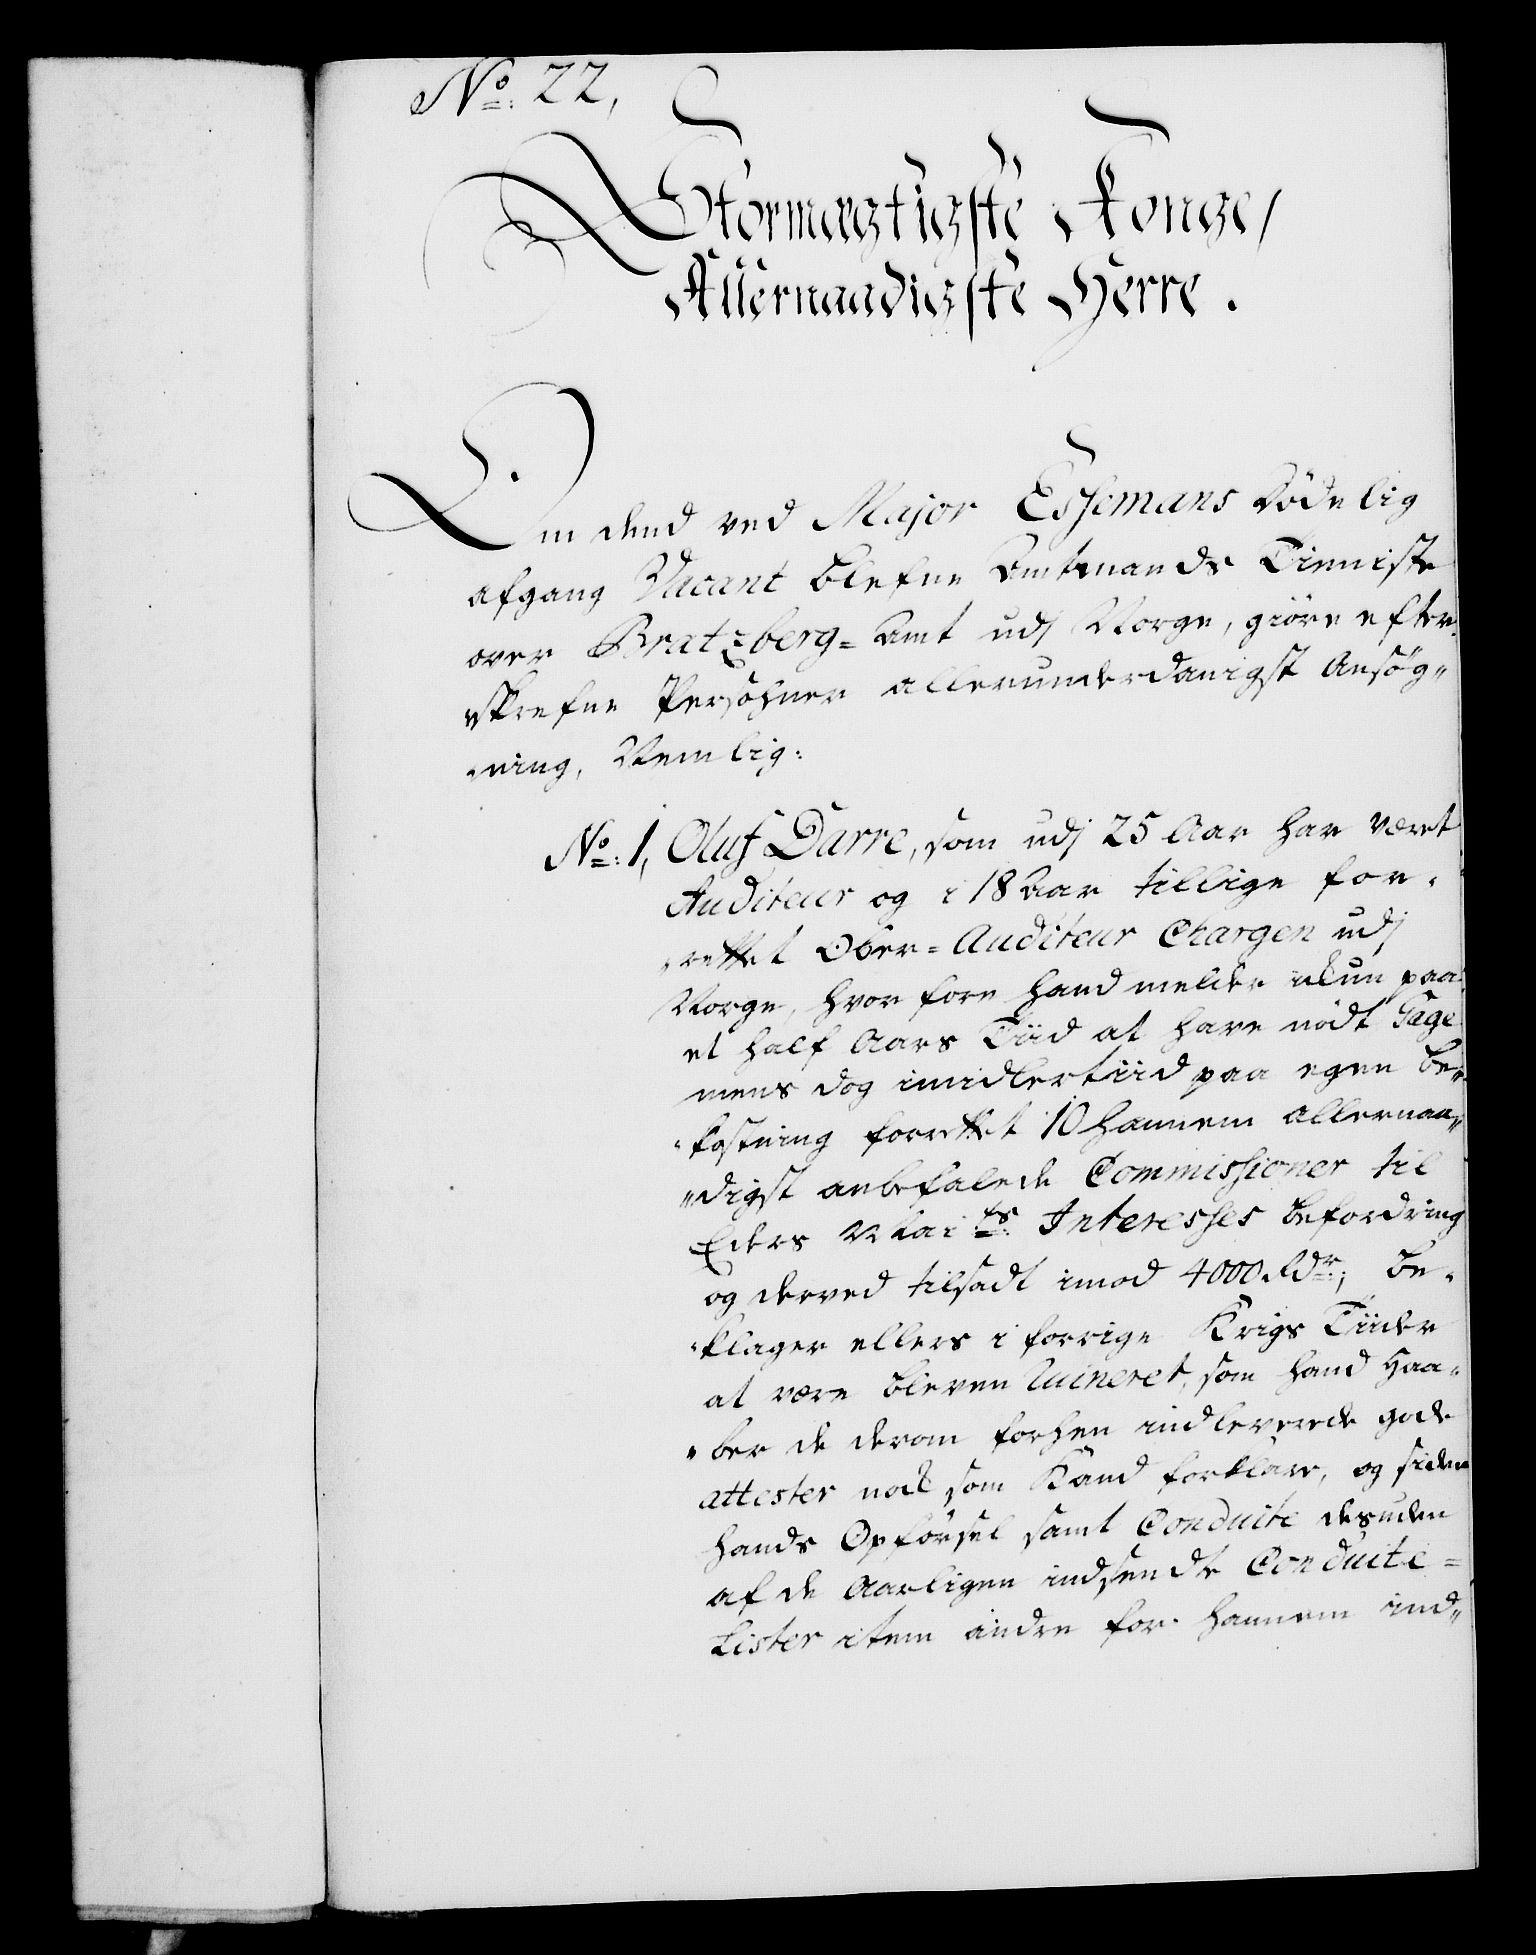 No: 22,
Stormægtigste Konge/
Allernaadigste Herre.
Om dend ved Major Essemans dödelig
afgang Vacant blefne Amtmands Tienniste
over Bratzberg=Amt udj Norge, giöre efter
skrefne Persohner allerunderdanigst Ansøg„
„ning, Nemlig:
No: 1, Oluf Darre, som udj 25 Aar har været
Auditeur og i 18 Aar tillige for„
„rettet Ober=Auditeur Chargen udj
Norge, hvor fore hand melder ickun paa
et half Aars Tiid at have nödt Gage
mens dog imidlertiid paa egen be„
„kostning forrettet 10 hannem allernaa„
„digst anbefalede Commissioner til
Eders Maits: Interesses befordring
og derved tilsadt imod 4000 Rdr:; be„
„klager ellers i forrige Krigs Tiider
at være bleven Ruineret, som hand haa„
„ber de derom forhen indleverede gode
attester nock som Kand forklare, og siden
hands Opförsel samt Conduite desuden
af de Aarligen indsendte Conduite=
Lister item andre for hannem ind„